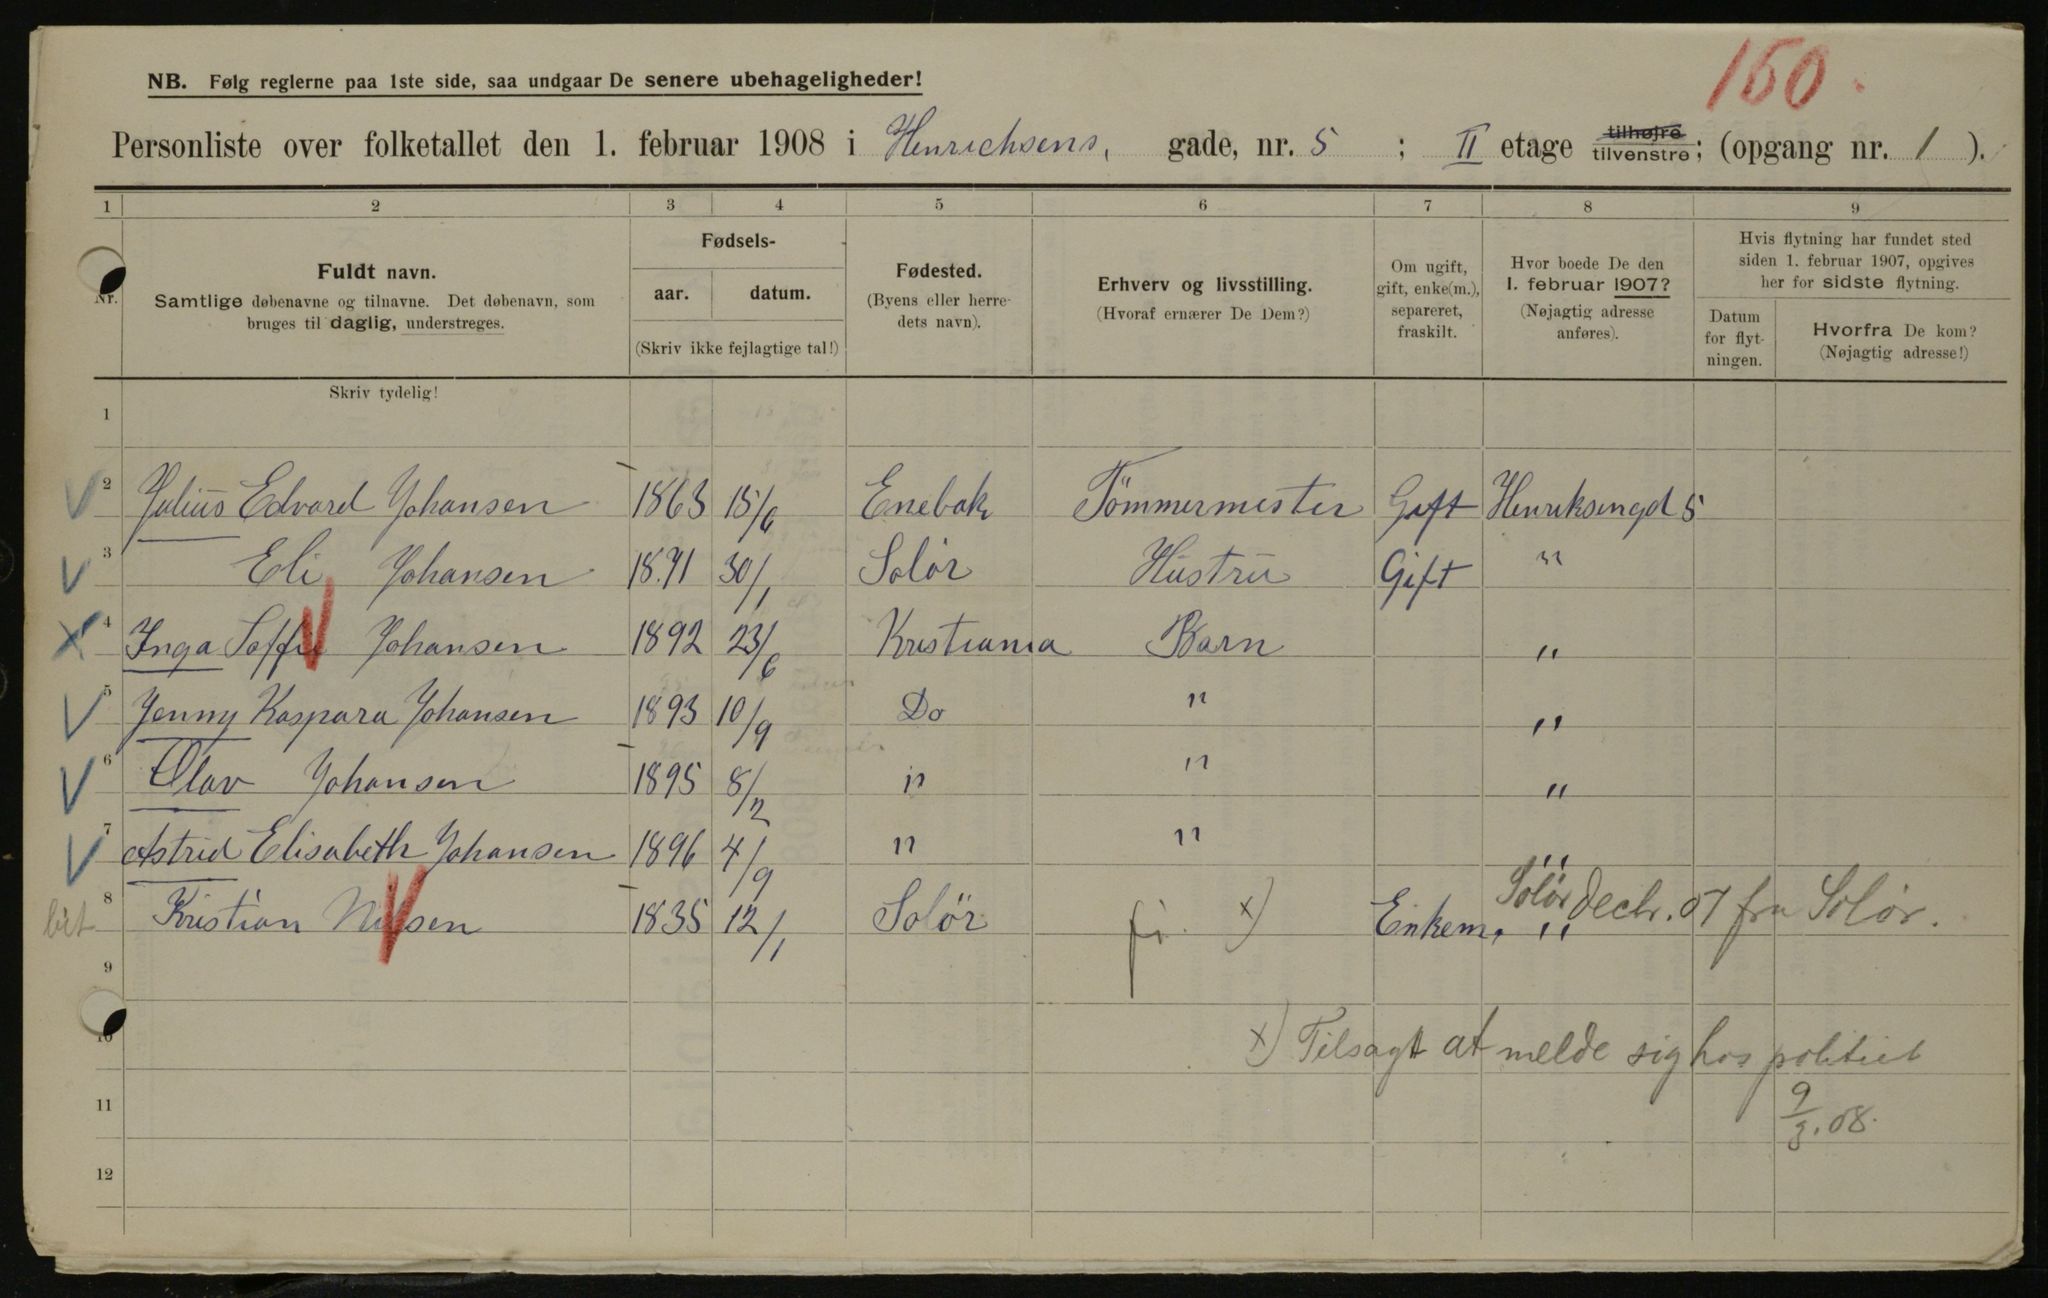 150.
NB. Følg reglerne paa 1ste side, saa undgaar De senere ubehageligheder!
Personliste over folketallet den 1. februar 1908 i Henrichsens, gade, nr. 5 ; II etage tilhøjre tilvenstre; (opgang nr. 1 ).
1 2 3 4 5 6 7 8 9
Nr.
Fuldt navn.
Samtlige døbenavne og tilnavne. Det døbenavn, som
bruges til daglig, understreges.
Fødsels-
aar. datum.
(Skriv ikke fejlagtige tal!)
Fødested.
(Byens eller herre-
dets navn).
Erhverv og livsstilling.
(Hvoraf ernærer De Dem?)
Om ugift,
gift, enke(m.),
separeret,
fraskilt.
Hvor boede De den
1. februar 1907?
(Nøjagtig adresse
anføres).
Hvis flytning har fundet sted
siden 1. februar 1907, opgives
her for sidste flytning.
Datum
for flyt-
ningen.
Hvorfra De kom?
(Nøjagtig adresse!)
Skriv tydelig!
1
2 Julius Edvard Johansen 1863 15/6 Enebak Tömmermester Gift Henriksengd 5
3 Eli Johansen 1871 30/1 Solör Hustru Gift "
4 Inga Soffie Johansen 1892 23/6 Kristiania Barn "
5 Jenny Kaspara Johansen 1893 10/9 Do " "
6 Olav Johansen 1895 8/12 " " "
7 Astrid Elisabeth Johansen 1896 4/9 " " "
8 Kristian Nilsen 1835 12/1 Solör fi. x) Enkem. " Solör Decbr. 07 fra Solör.
9
10 x) Tilsagt at melde sig hos politiet
11 9/3.08.
12